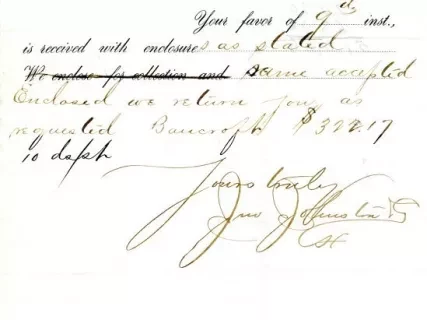 Your favor of 9th inst.,
is received with enclosures as stated
We enclose for collection and same accepted
Enclosed we return you as
requested Bancroft $322.17
10 ds/st
Yours truly
Jno Johnston